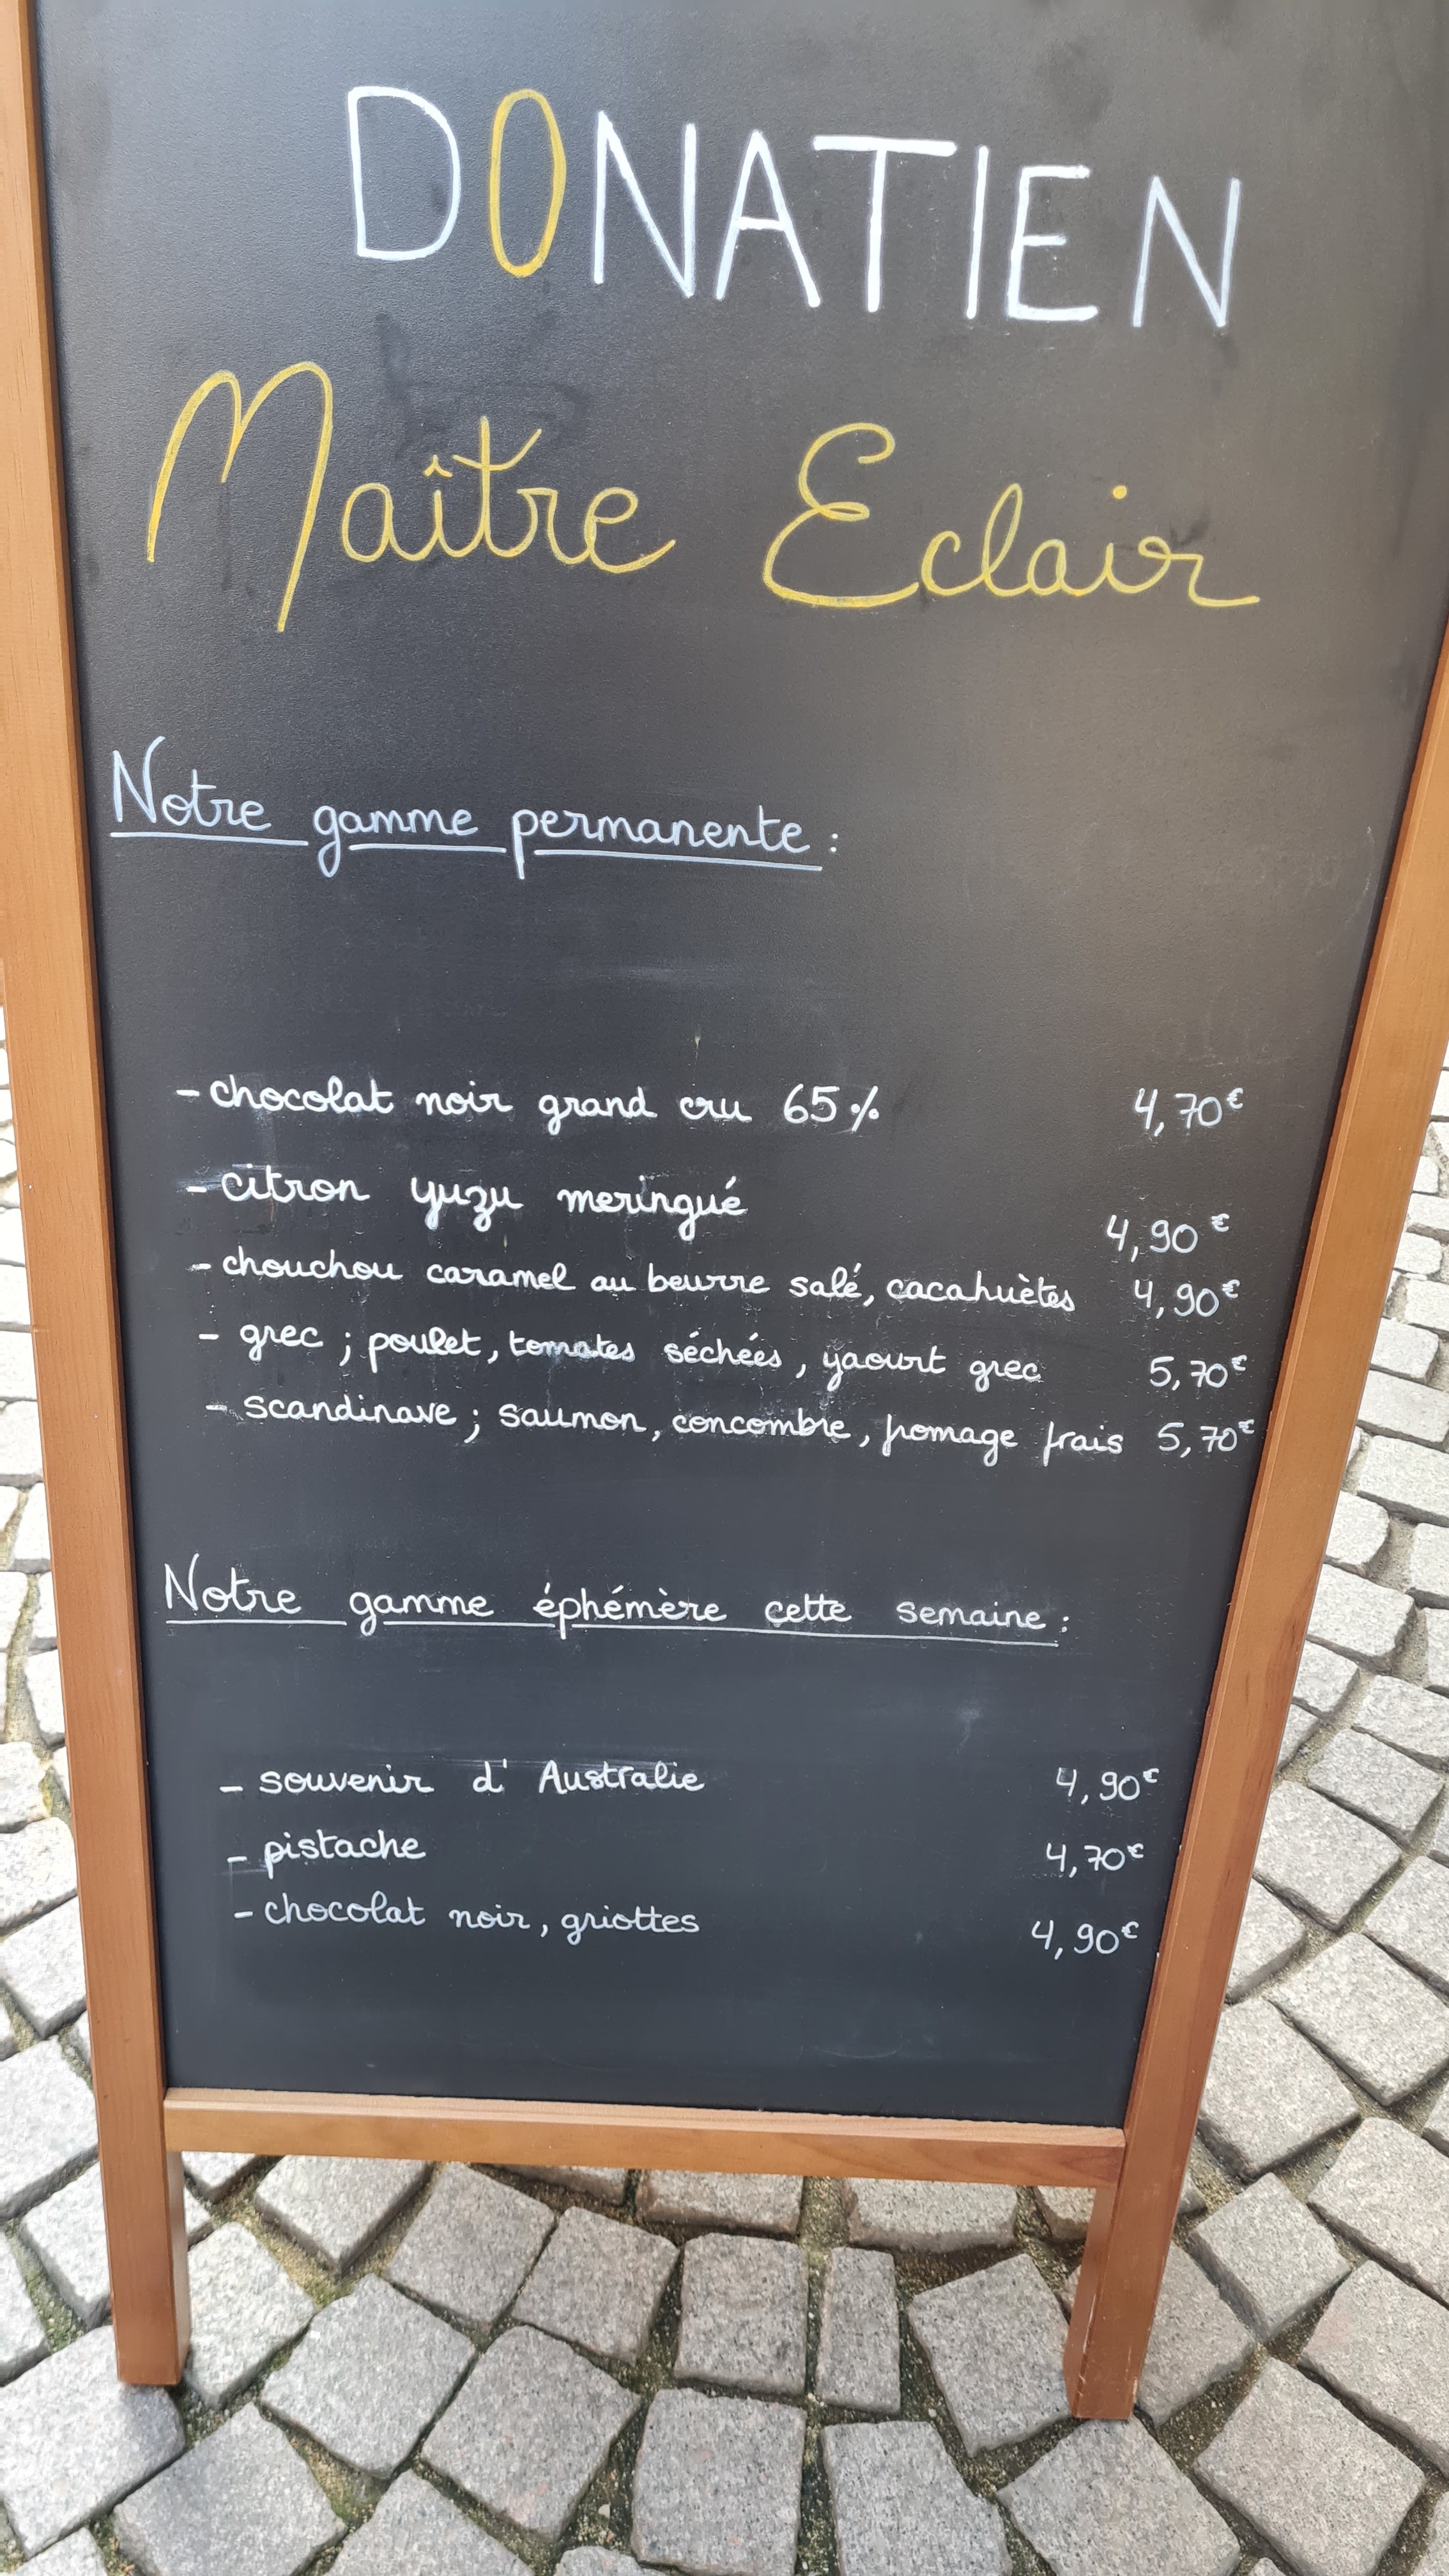 DONATIEN
Maître Eclair
Notre gamme permanente :
- chocolat noir grand cru 65% 4,70€
- citron yuzu meringué 4,90€
- chouchou caramel au beurre salé, cacahuètes 4,90€
- grec ; poulet, tomates séchées, yaourt grec 5,70€
- scandinave ; saumon, concombre, fromage frais 5,70€
Notre gamme éphémère cette semaine :
- souvenir d'Australie 4,90€
- pistache 4,70€
- chocolat noir, griottes 4,90€